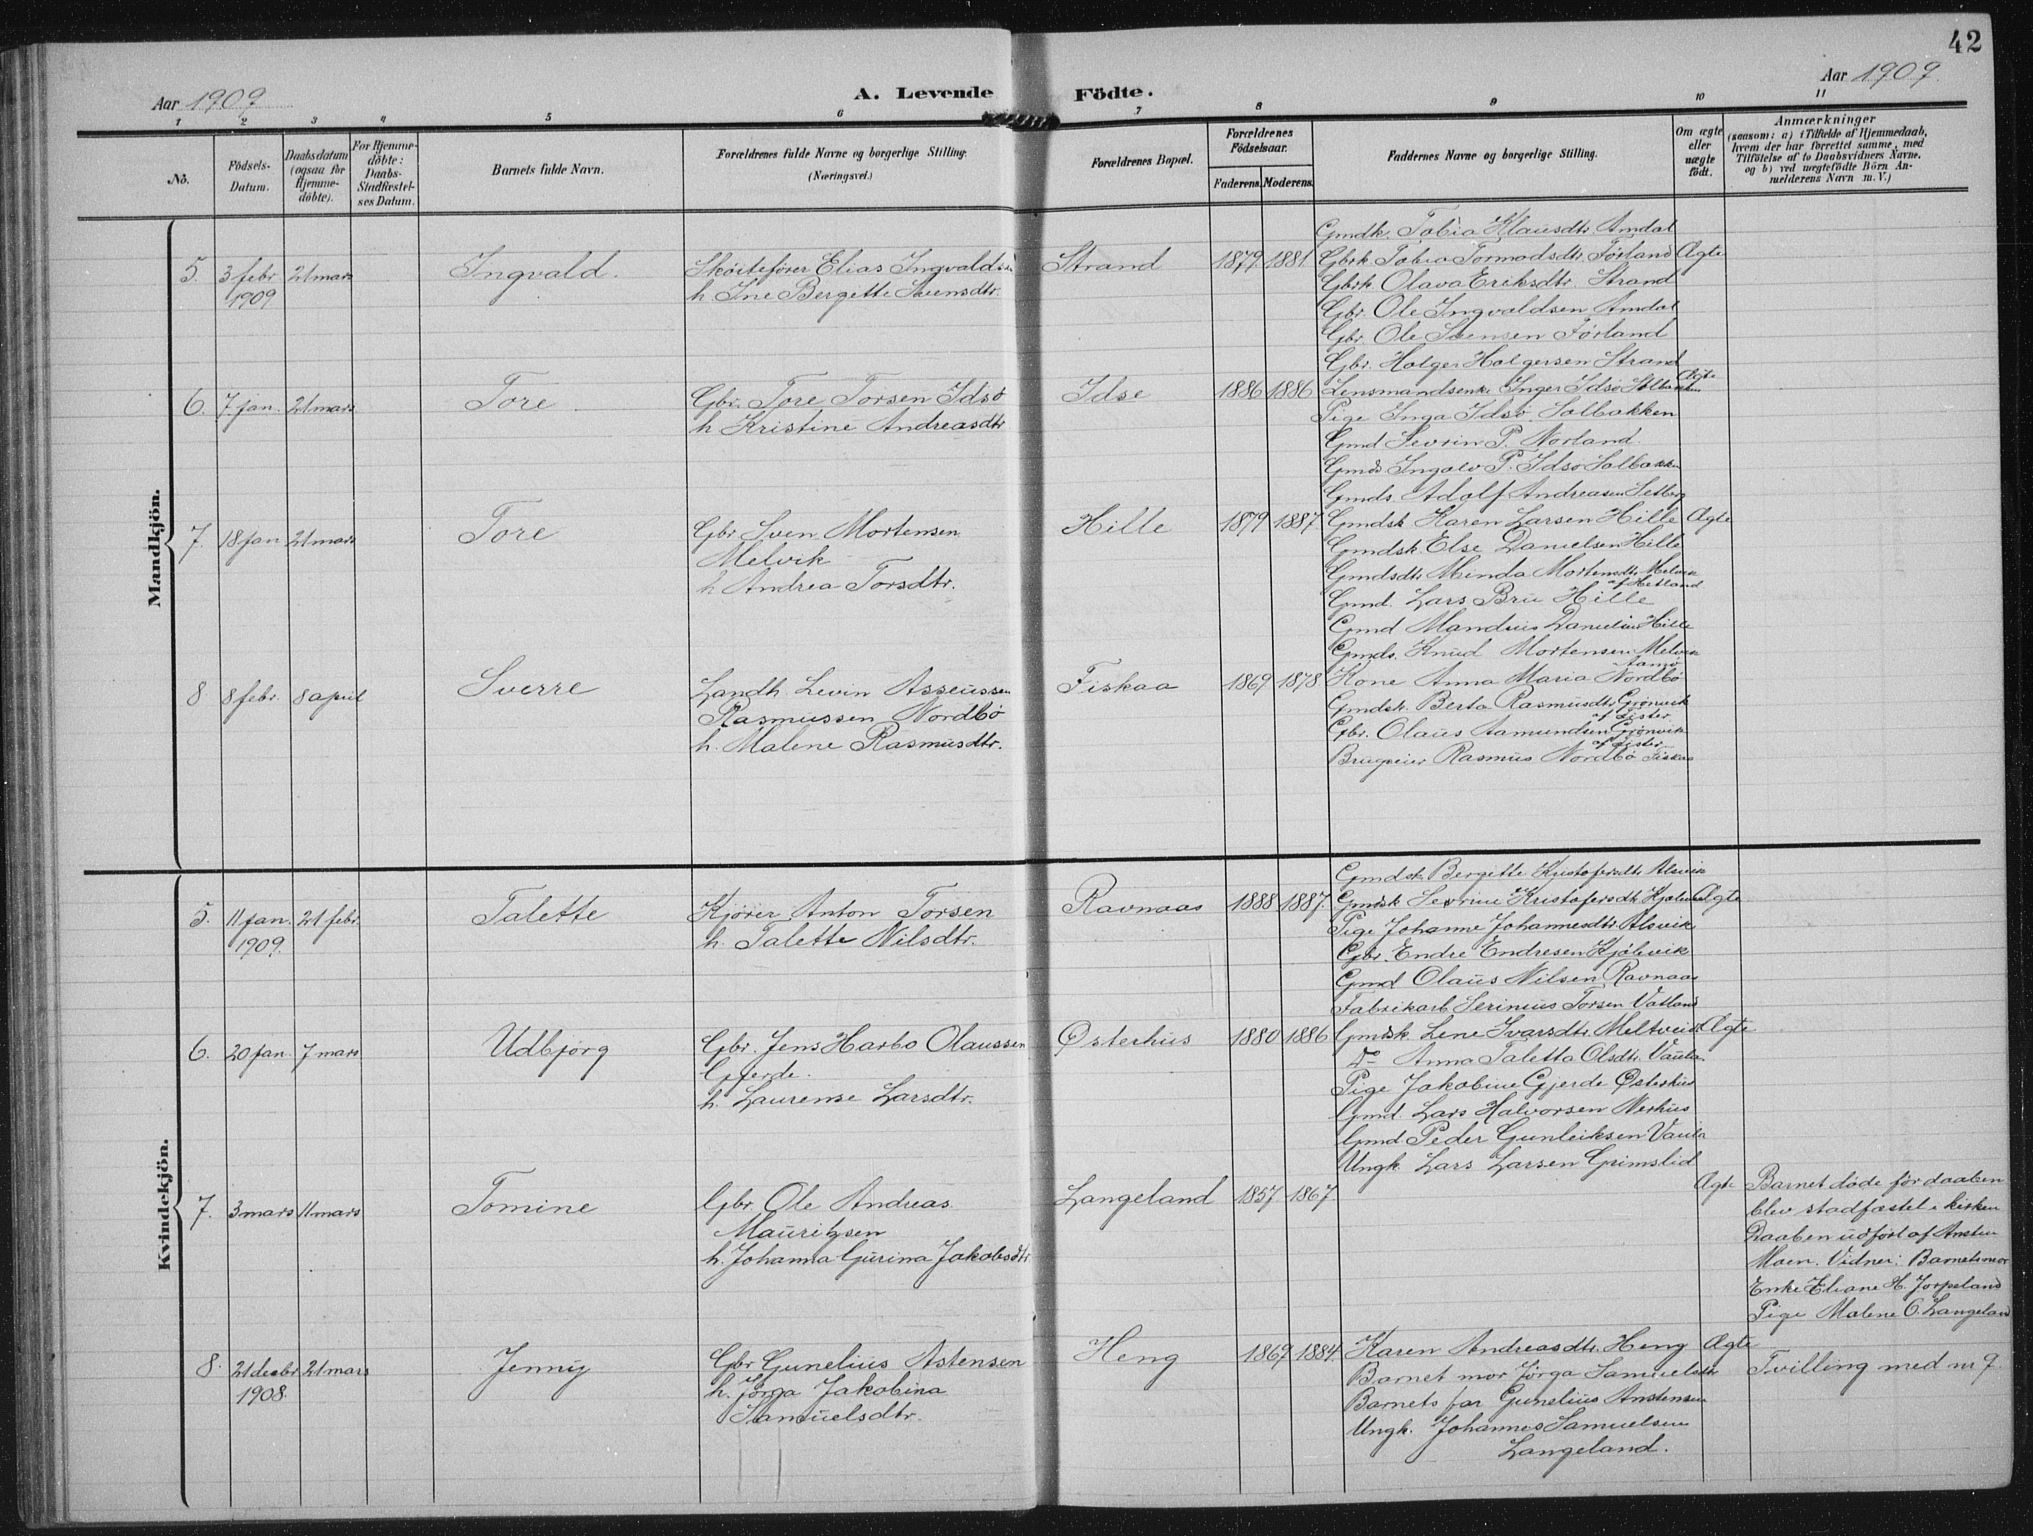 42
Aar 1909
A. Levende Födte.
Aar 1909.
1 2 3 4 5 6 7 8 9 10 11
No.
Födsels-Datum.
Daabsdatum (ogsaa for Hjemme-döbte).
For Hjemme-döbte: Daabs-Stadfæstel-ses Datum.
Barnets fulde Navn.
Forældrenes fulde Navne og borgerlige Stilling.
(Næringsvei.)
Forældrenes Bopæl.
Forældrenes Födselsaar.
Faderens. Moderens.
Faddernes Navne og borgerlige Stilling.
Om ægte eller uægte födt.
Anmærkninger
(saasom: a) i Tilfælde af Hjemmedaab,
hvem der har forrettet samme, med
Tilföielse af to Daabsvidners Navne,
og b) ved uægtefödte Börn An-
melderens Navn m. V.)
Mandkjön.
5. 3 febr 1909 21 mars
Ingvald.
Skøitefører Elias Ingvaldsen
h. Ine Bergitte Svensdtr.
Strand 1879 1881
Gmdk. Tobia Klausdtr. Amdal
Gbrk Tobia Tormodsdtr. Førland Ægte
Gbrk. Olava Eriksdtr Strand
Gbr. Ole Ingvaldsen Amdal
Gbr. Ole Svensen Førland
Gbr. Holger Holgersen Strand
6. 7 jan. 21 mars
Tore
Gbr. Tore Torsen Idsø
h Kristine Andreasdtr
Idse 1886 1886
Lensmandsenke Inger Idsø Solbakken Ægte
Pige Inga Idsø Solbakken
Gmd Sevrin P. Norland.
Gmds. Ingolv P. Idsø Solbakken
Gmds. Adolf Andreasen Setberg
7. 18 jan 21 mars
Tore
Gbr Sven Mortensen
Melvik
h Andrea Torsdtr.
Hille 1879 1887
Gmdsk Karen Larsen Hille Ægte
Gmdsk. Else Danielsen Hille
Gmdsdtr. Minda Mortensdtr. Melvik
af Hetland
Gmd. Lars Bru Hille
Gmd Mandius Danielsen Hille
Gmds. Knud Mortensen Melvik
8 8 febr. 8 april
Sverre
Landh. Levin Asseussen
Rasmussen Nordbø
h. Malene Rasmusdtr.
Fiskaa 1869 1878
Kone Anna Maria Nordbø
Gmdsk. Berta Rasmusdtr. Grønvik
af Lister
Gbr. Olaus Aamundsen Grønvik
af Lister
Brugeier Rasmus Nordbø Fiskaa
Kvindekjön.
5. 11 jan. 1909. 21 febr.
Talette
Kjører Anton Torsen
h. Talette Nilsdtr.
Ravnaas 1888 1887.
Gmdsk. Bergitte Kristofersdtr. Alsvik
Gmdsk Sevrine Kristofersdtr. Ægte
Pige Johanne Johannesdtr. Alsvik
Gbr. Endre Endresen Kjølevik
Gmd Olaus Nilsen Ravnaas
Fabrikarb. Serinius Torsen Vatland
6. 20 jan. 7 mars
Udbjørg
Gbr. Jens Harbo Olaussen
Gjerde.
h. Laurense Larsdtr.
Østerhus 1880 1886
Gmdsk. Lene Ivarsdtr. Meltveidt Ægte
Do Anna Taletta Olsdtr. Vaula.
Pige Jakobine Gjerde Østerhus
Gmd. Lars Halvorsen Nerhus
Gmd Peder Gunleiksen Vaula
Ungk. Lars Larsen Grimslid
7. 3 mars 11 mars
Tomine
Gbr. Ole Andreas
Mauritzsen
h. Johanna Gurina Jakobsdtr
Langeland 1857 1867.
Ægte
Barnet døde før daaben
blev stadfæstet i kirken
Daaben udført af Ansten
Moen. Vidner: Barnets mor
Enke Eliane A. Jørpeland
Pige Malene O. Langeland
8. 21 decbr 1908. 21 mars
Jenny
Gbr Gunelius Astensen
h. Jørga Jakobina
Samuelsdtr.
Heng 1869 1884.
Karen Andreasdtr. Heng Ægte
Barnet mor Jørga Samuelsdtr
Barnets far Gunelius Anstensen
Ungk. Johannes Samuelsen
Langeland.
Tvilling med nr 9.